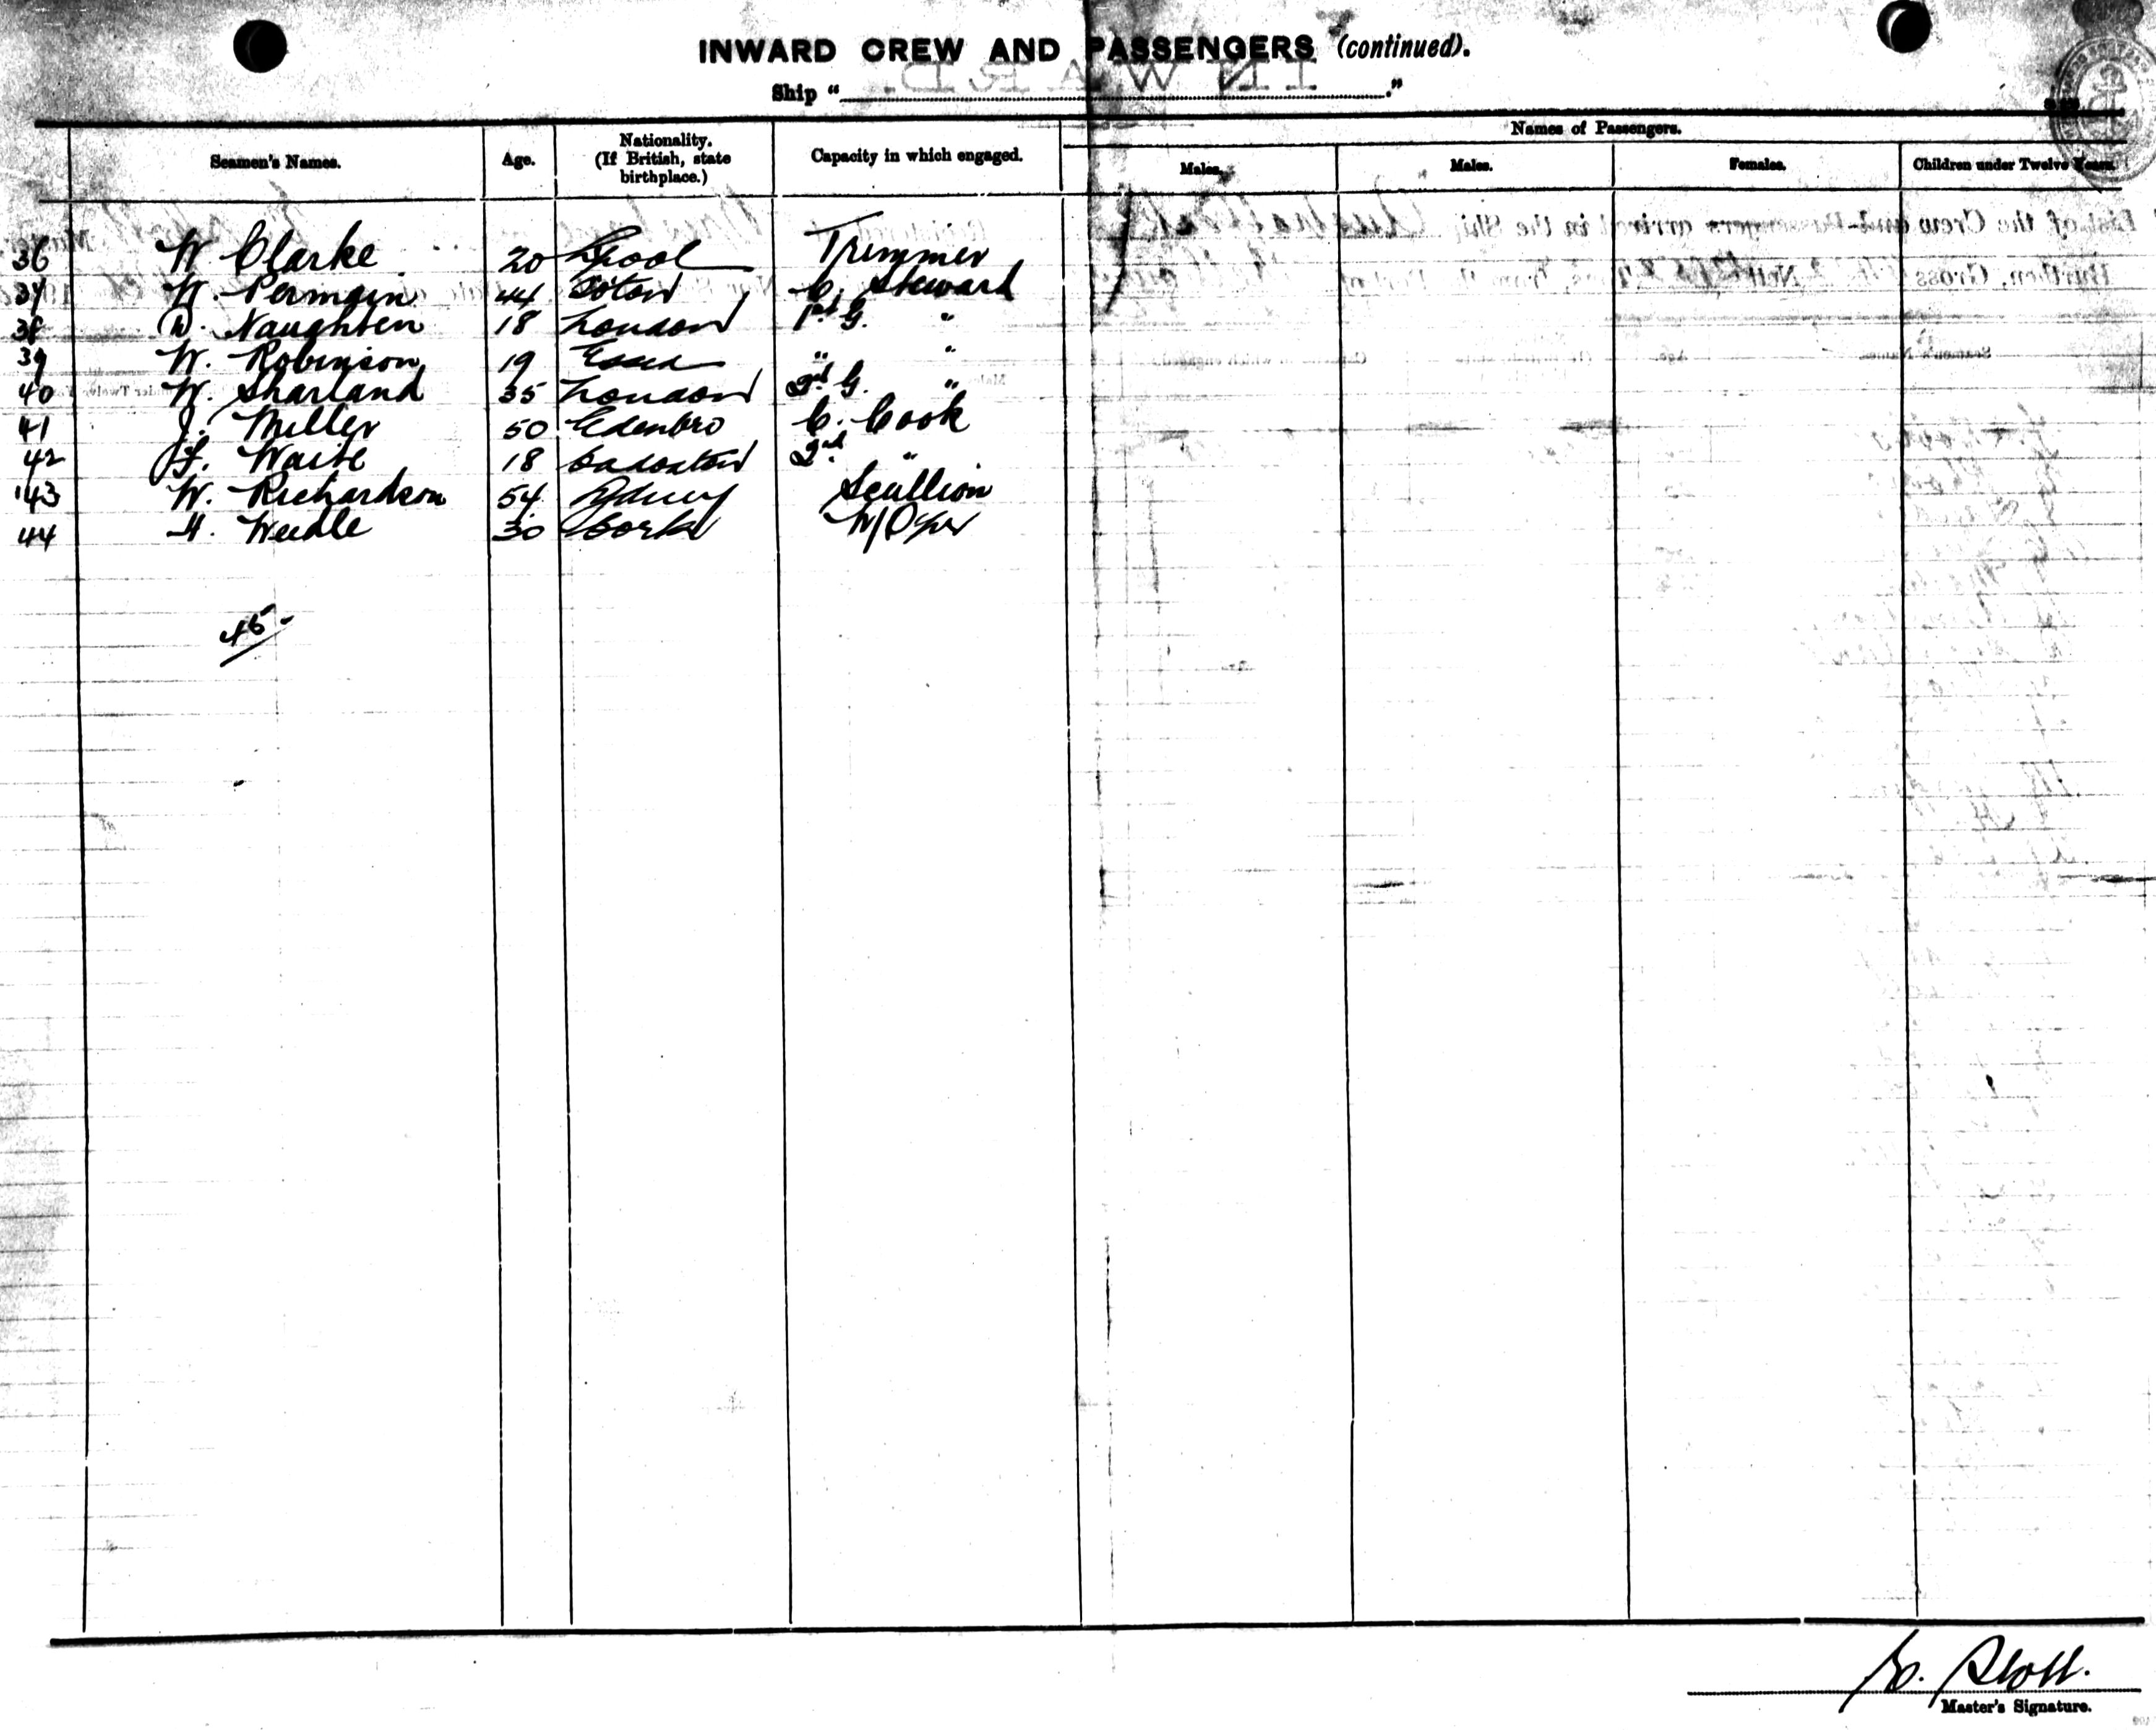 INWARD CREW AND PASSENGERS (continued).
Ship " ."
Names of Passengers.
Seamen's Names. Age. Nationality. (If British, state birthplace.) Capacity in which engaged. Males. Males. Females. Children under Twelve Years.
36 W. Clarke 20 Lpool Trimmer
37 W. Permain 44 Soton C. Steward
38 D. Naughten 18 London 1st G. "
39 W. Robinson 19 Essex " "
40 W. Sharland 35 London 2nd G. "
41 J. Miller 50 Edenbro C. Cook
42 F. Waite 18 2nd "
43 W. Richardson 54 Sydney Scullion
44 H. Weedle 30 Cork W/Opr
45
Master's Signature.